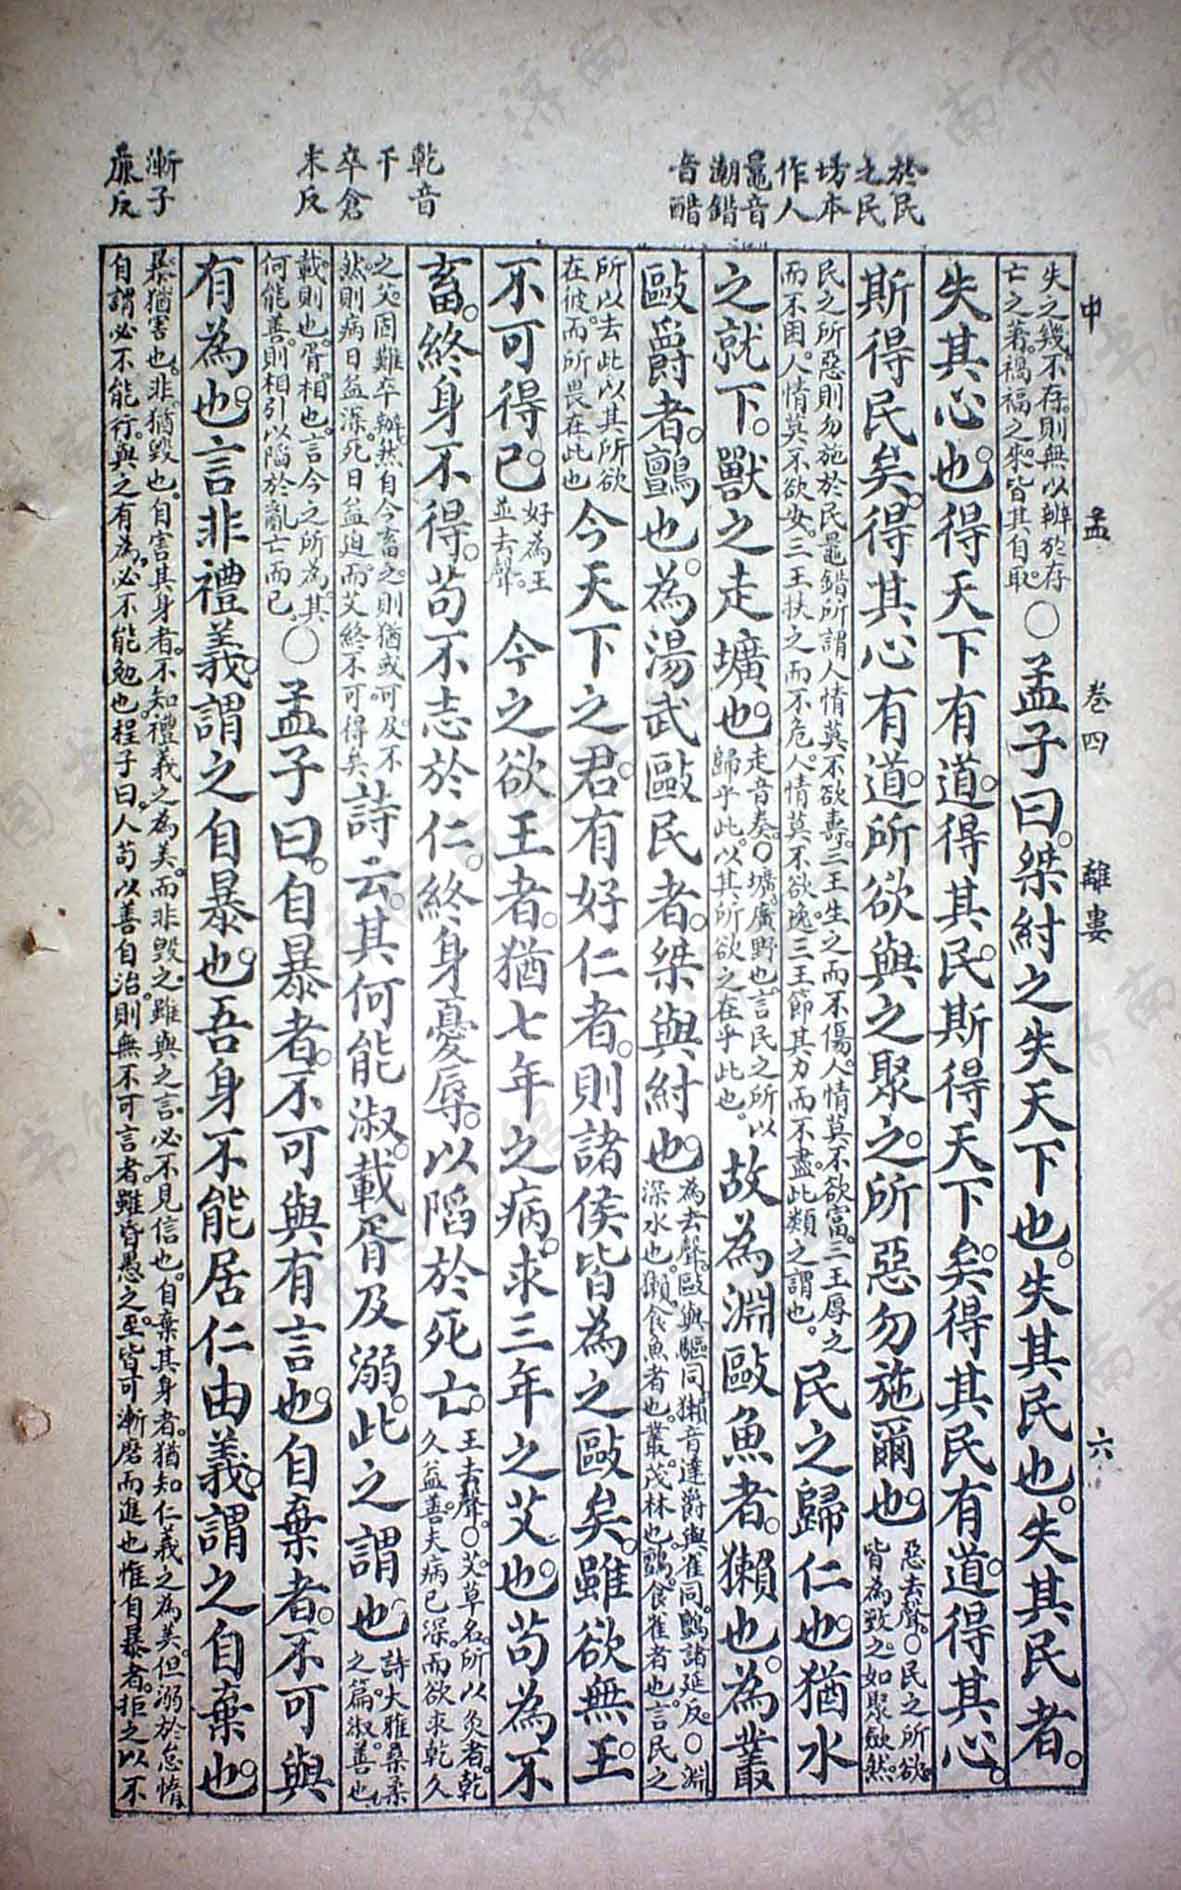 於民
之民
坊本
作人
鼂音
潮錯
音醋
乾音
干
卒倉
末反
漸子
廉反
中孟　卷四　離婁　六
失之幾。不存。則無以辨於存
亡之著。禍福之來。皆其自取。
○孟子曰。桀紂之失天下也。失其民也。失其民者。
失其心也。得天下有道。得其民斯得天下矣。得其民有道。得其心。
斯得民矣。得其心有道。所欲與之聚之。所惡勿施爾也。
惡去聲。○民之所欲。
皆為致之。如聚歛然。
民之所惡則勿施於民。鼂錯所謂人情莫不欲壽。三王生之而不傷。人情莫不欲富。三王厚之
而不困。人情莫不欲安。三王扶之而不危。人情莫不欲逸。三王節其力而不盡。此類之謂也。
民之歸仁也。猶水
之就下。獸之走壙也。
走音奏。○壙。廣野也。言民之所以
歸乎此。以其所欲之在乎此也。
故為淵敺魚者。獺也。為叢
敺爵者。鸇也。為湯武敺民者。桀與紂也。
為去聲。敺與驅同。獺音達。爵與雀同。鸇諸延反。○淵。
深水也。獺食魚者也。叢。茂林也。鸇。食雀者也。言民之
所以去此以其所欲
在彼。而所畏在此也
今天下之君。有好仁者。則諸侯皆為之敺矣。雖欲無王。
不可得已。
好為王
並去聲。
今之欲王者。猶七年之病。求三年之艾也。苟為不
畜。終身不得。苟不志於仁。終身憂辱。以陷於死亡。
王去聲。○艾草名。所以灸者。乾
久益善。夫病已深。而欲求乾久
之艾。固難卒辦。然自今畜之。則猶或可及。不
然。則病日益深。死日益迫。而艾終不可得矣
詩云。其何能淑。載胥及溺。此之謂也
詩大雅桑柔
之篇。淑。善也
載。則也。胥。相也。言今之所為。其
何能善。則相引以陷於亂亡而已。
○孟子曰。自暴者。不可與有言也。自棄者。不可與
有為也。言非禮義。謂之自暴也。吾身不能居仁由義。謂之自棄也。
暴猶害也。非猶毀也。自害其身者。不知禮義之為美。而非毀之。雖與之言。必不見信也。自棄其身者。猶知仁義之為美。但溺於怠惰。
自謂必不能行。與之有為。必不能勉也。程子曰。人苟以善自治。則無不可言者。雖昏愚之至。皆可漸磨而進也惟自暴者。拒之以不